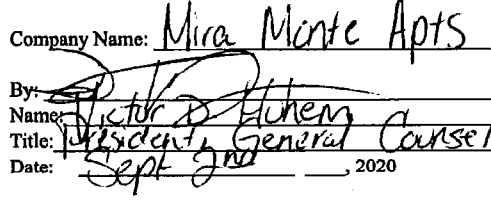 Company Name: Mira Monte Apts
By:
Name: Victor D
Title: President, General Counsel
Date: Sept 2nd, 2020